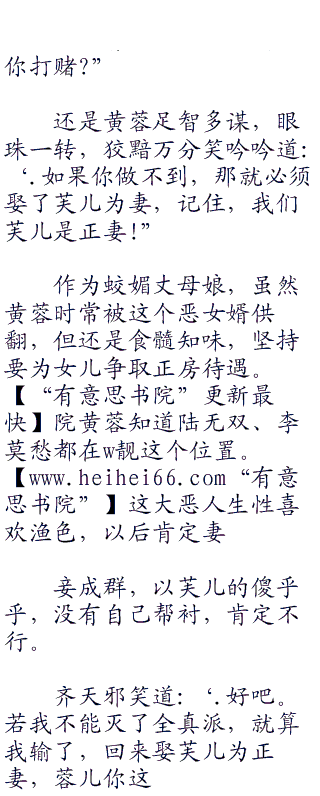 你打赌?”
还是黄蓉足智多谋，眼
珠一转，狡黯万分笑吟吟道:
‘.如果你做不到，那就必须
娶了芙儿为妻，记住，我们
芙儿是正妻!”
作为蛟媚丈母娘，虽然
黄蓉时常被这个恶女婿供
翻，但还是食髓知味，坚持
要为女儿争取正房待遇。
【“有意思书院”更新最
快】院黄蓉知道陆无双、李
莫愁都在w靓这个位置。
【www.heihei66.com“有意
思书院”】这大恶人生性喜
欢渔色，以后肯定妻
妾成群，以芙儿的傻乎
乎，没有自己帮衬，肯定不
行。
齐天邪笑道:‘.好吧。
若我不能灭了全真派，就算
我输了，回来娶芙儿为正
妻，蓉儿你这